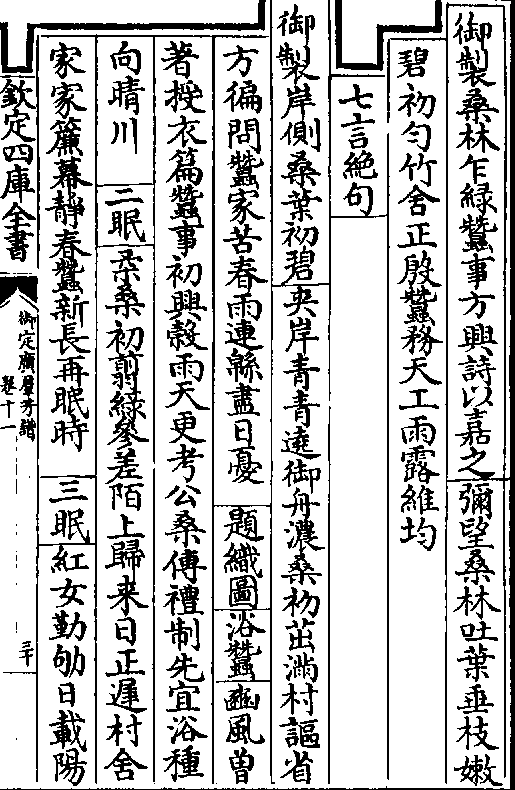 御製桑林乍緑蠶事方興詩以嘉之彌望桑林吐葉垂枝嫩
碧初勻竹舍正殷蠶務天工雨露維均
七言絶句
御製岸側桑葉初碧夾岸青青遶御舟濃桑初茁滿村謳省
方徧問蠶家苦春雨連緜盡日憂題織圖浴蠶豳風曽
著授衣篇蠶事初興穀雨天更考公桑傳禮制先宜浴種
向晴川二眠柔桑初翦緑參差陌上歸来日正遲村舍
家家簾幕靜春蠶新長再眠時三眠紅女勤劬日載陽
欽定四庫全書
御定廣羣芳譜
卷十一
三十